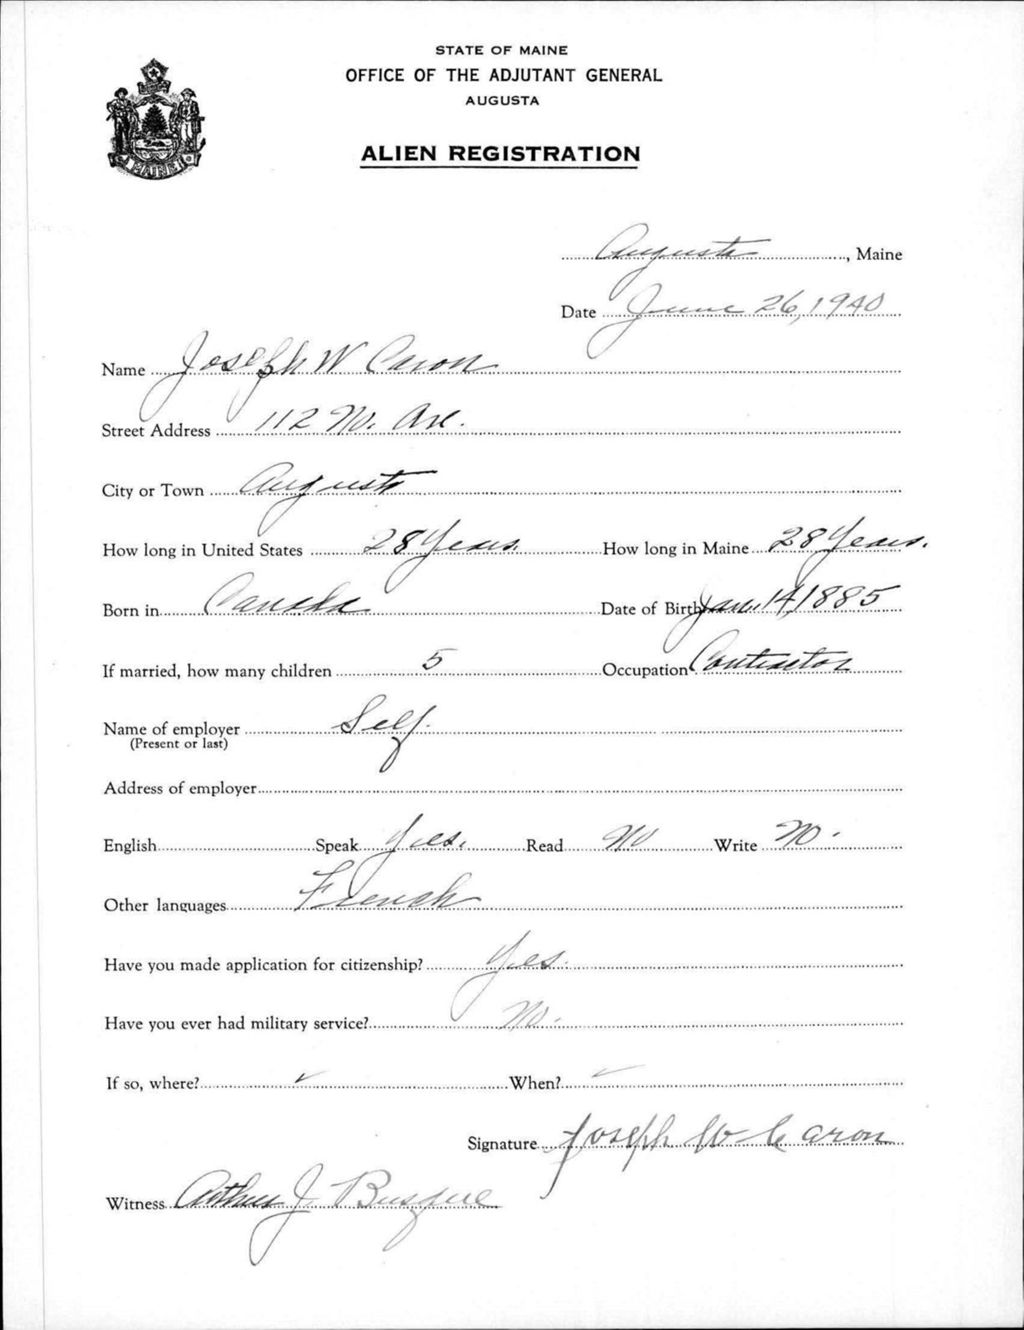 STATE OF MAINE
OFFICE OF THE ADJUTANT GENERAL
AUGUSTA
ALIEN REGISTRATION
MAINE
Augusta, Maine
Date June 26, 1940
Name Joseph W Caron
Street Address 112 No. Ave.
City or Town Augusta
How long in United States 28 Years. How long in Maine 28 Years.
Born in Canada Date of Birth Jan. 14, 1885
If married, how many children 5 Occupation Contractor
Name of employer Self.
(Present or last)
Address of employer
English Speak Yes. Read No Write No.
Other languages French
Have you made application for citizenship? Yes.
Have you ever had military service? No.
If so, where? ✓ When? ✓
Signature Joseph W Caron
Witness Arthur J. Busque